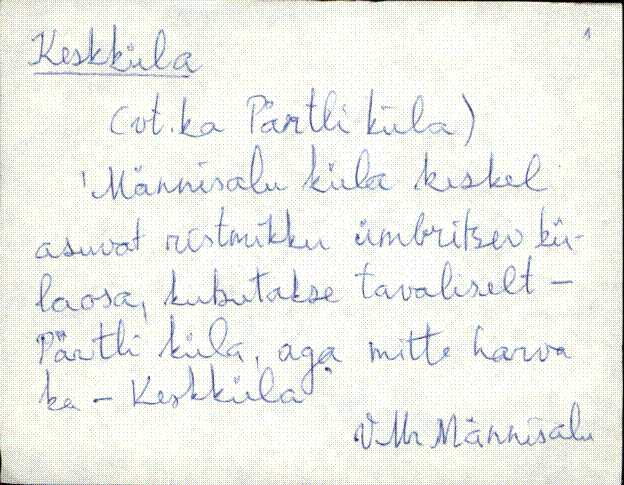 1
Keskküla
(vt. ka Pärtli küla)
'Männisalu küla keskel
asuvat ristmikku ümbritsev kü-
laosa, kutsutakse tavaliselt –
Pärtli küla, aga mitte harva
ka – Keskküla'
VMr Männisalu